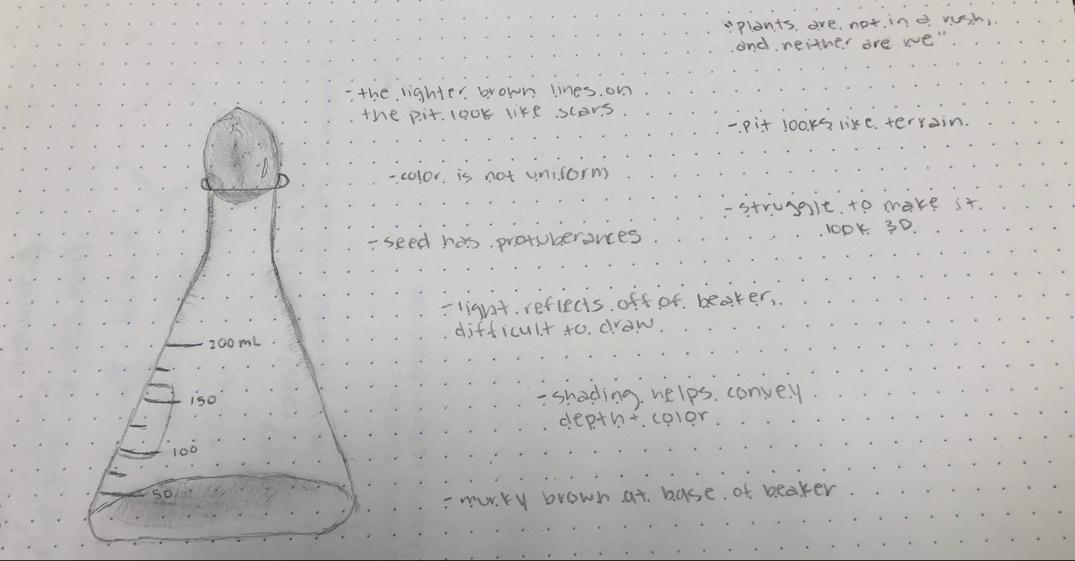 "plants are not in a rush,
and neither are we"
-the lighter brown lines on
the pit look like scars
-pit looks like terrain.
-color is not uniform
-struggle to make it
look 3D.
-seed has protuberances
-light reflects off of beaker,
difficult to draw
200 mL
-shading helps convey
depth + color
150
100
50
-murky brown at base of beaker